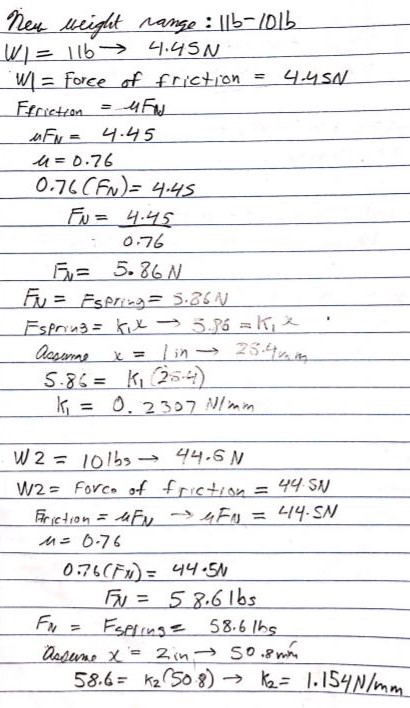 New weight range: 1lb-10lb
W1 = 1lb → 4.45N
W1 = Force of friction = 4.45N
Ffriction = μFN
μFN = 4.45
μ = 0.76
0.76(FN) = 4.45
FN = 4.45
0.76
FN = 5.86N
FN = Fspring = 5.86N
Fspring = K₁x → 5.86 = K₁x
Assume x = 1in → 25.4mm
5.86 = K₁(25.4)
K₁ = 0.2307 N/mm
W2 = 10lbs → 44.5N
W2 = Force of friction = 44.5N
Friction = μFN → μFN = 44.5N
μ = 0.76
0.76(FN) = 44.5N
FN = 58.6lbs
FN = Fspring = 58.6lbs
Assume x = 2in → 50.8mm
58.6 = K₂(50.8) → K₂ = 1.154N/mm